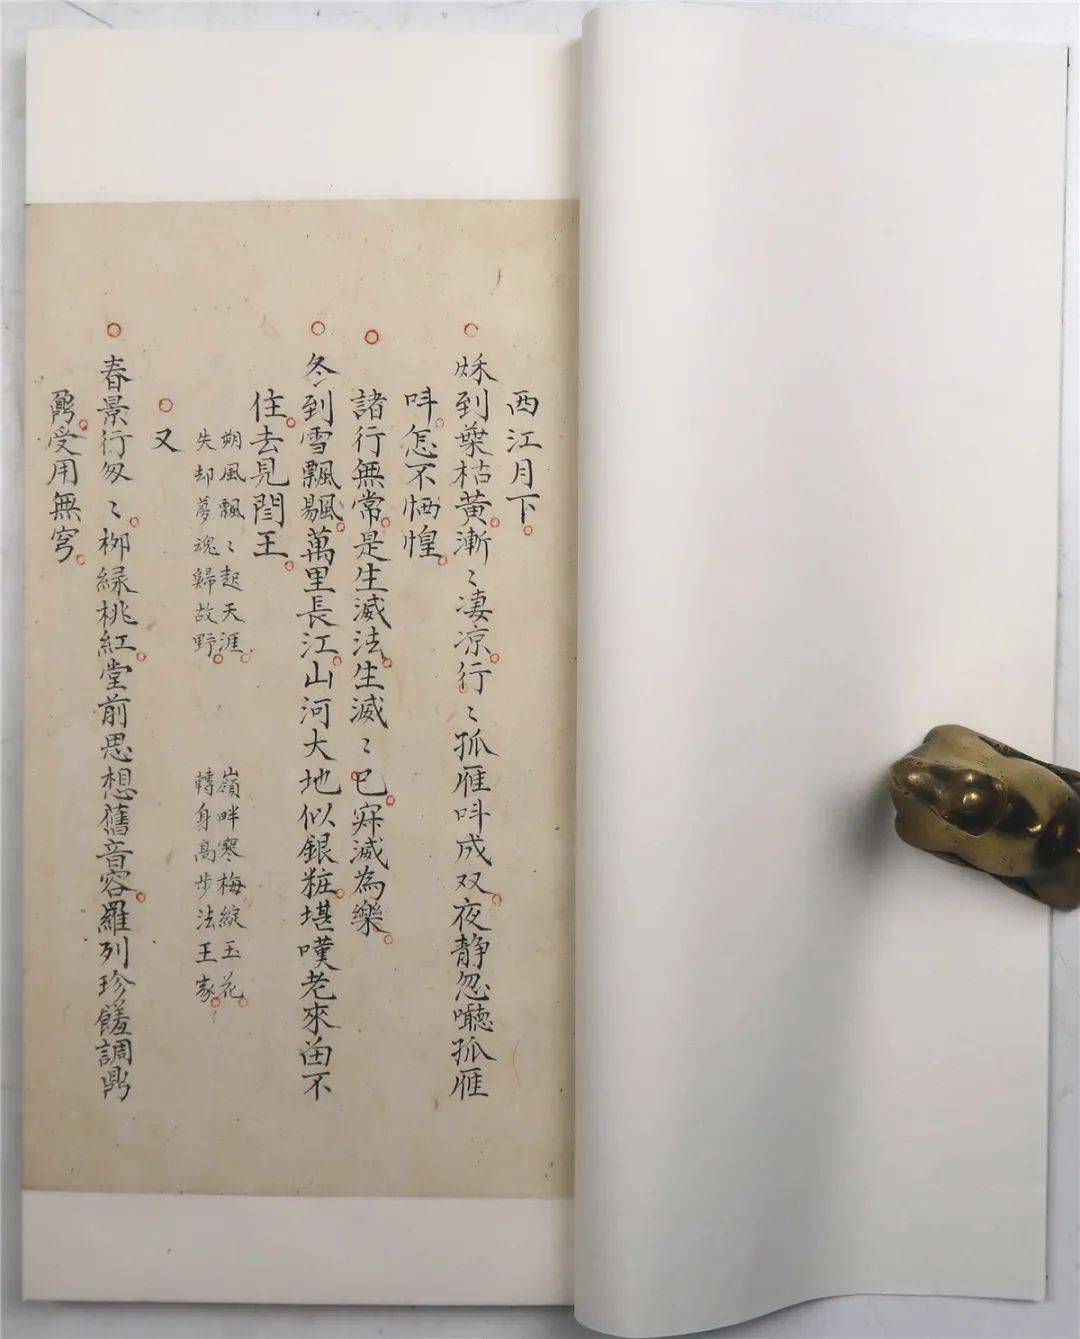 西江月下
秌到葉枯黃漸〻凄凉行〻孤雁呌成双夜静忽嚥孤雁
呌怎不恓惶
諸行無常是生滅法生滅〻已㝥滅為樂
冬到雪飄颺萬里長江山河大地似銀粧堪嘆老來畄不
住去見閆王
朔風飄〻起天涯 嶺畔寒梅綻玉花
失却夢魂歸故野 轉身高步法王家
又
春景行匆〻栁緑桃紅堂前思想舊音容羅列珍饈調鼎
鼐受用無穹